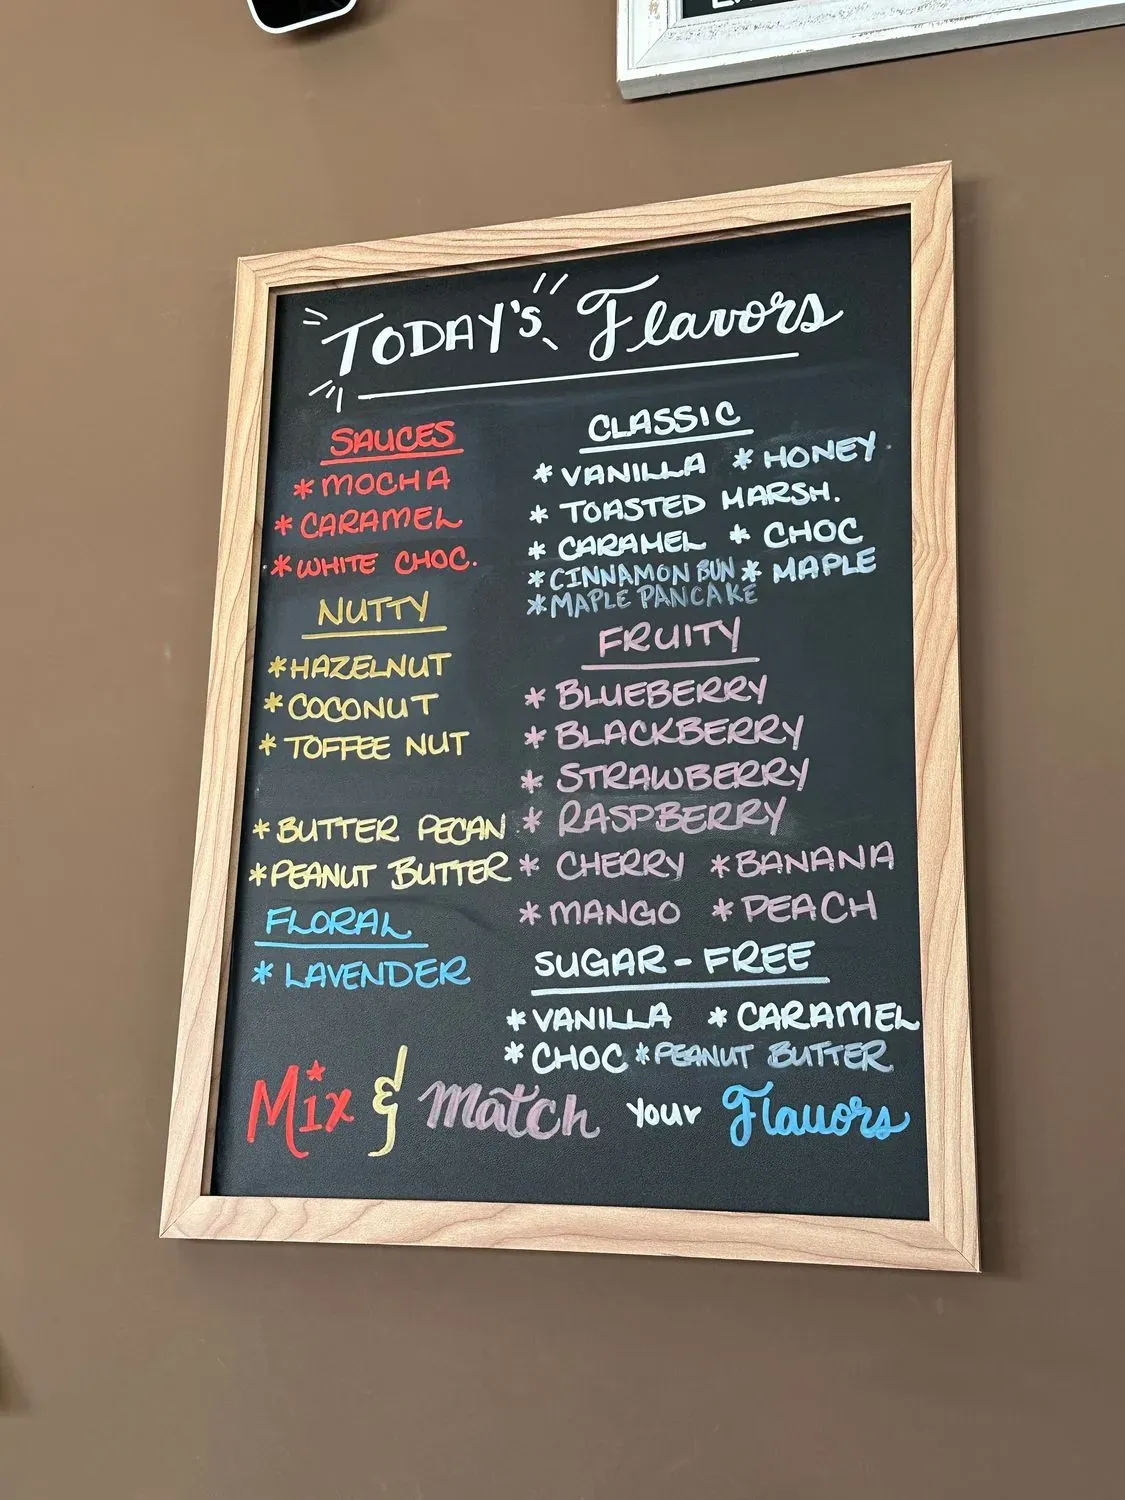 TODAY'S Flavors
SAUCES
* MOCHA
* CARAMEL
* WHITE CHOC.
NUTTY
* HAZELNUT
* COCONUT
* TOFFEE NUT
* BUTTER PECAN
* PEANUT BUTTER
FLORAL
* LAVENDER
CLASSIC
* VANILLA * HONEY
* TOASTED MARSH.
* CARAMEL * CHOC
* CINNAMON BUN * MAPLE
* MAPLE PANCAKE
FRUITY
* BLUEBERRY
* BLACKBERRY
* STRAWBERRY
* RASPBERRY
* CHERRY * BANANA
* MANGO * PEACH
SUGAR-FREE
* VANILLA * CARAMEL
* CHOC * PEANUT BUTTER
Mix & Match your Flavors